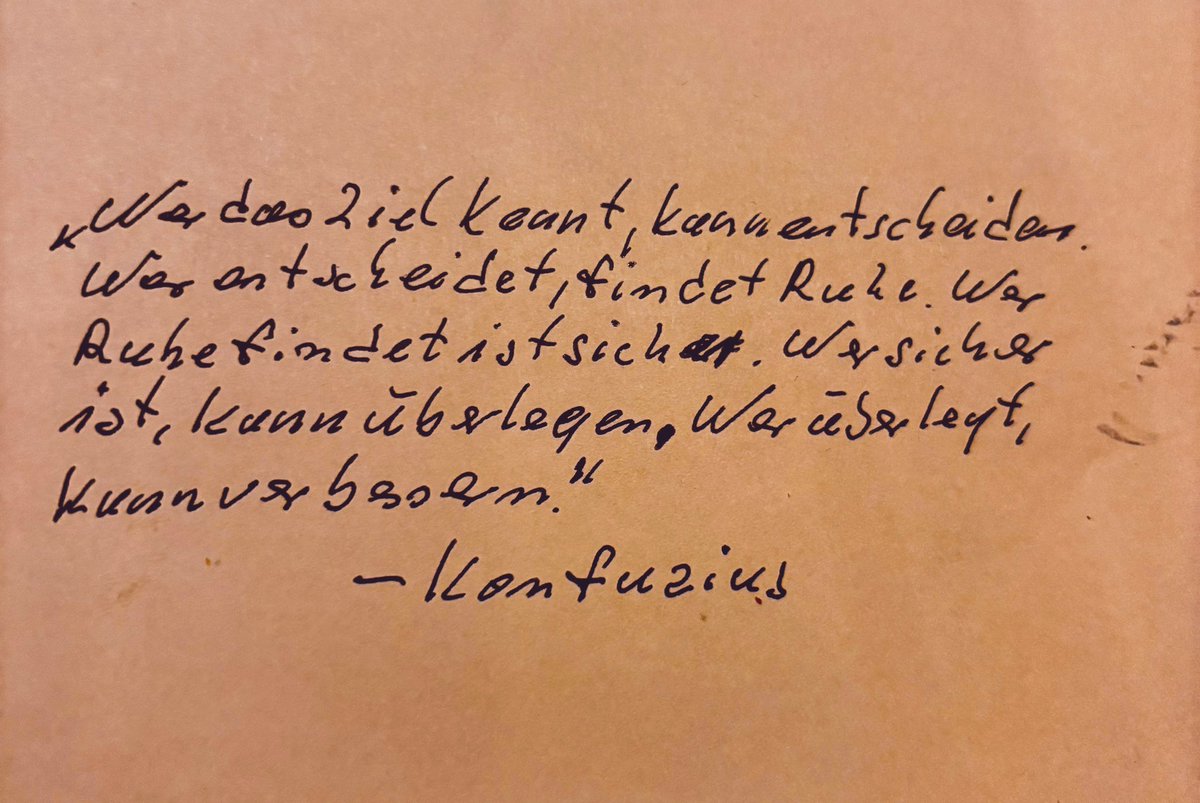 „Wer das Ziel kennt, kann entscheiden.
Wer entscheidet, findet Ruhe. Wer
Ruhe findet ist sicher. Wer sicher
ist, kann überlegen. Wer überlegt,
kann verbessern.“
– Konfuzius